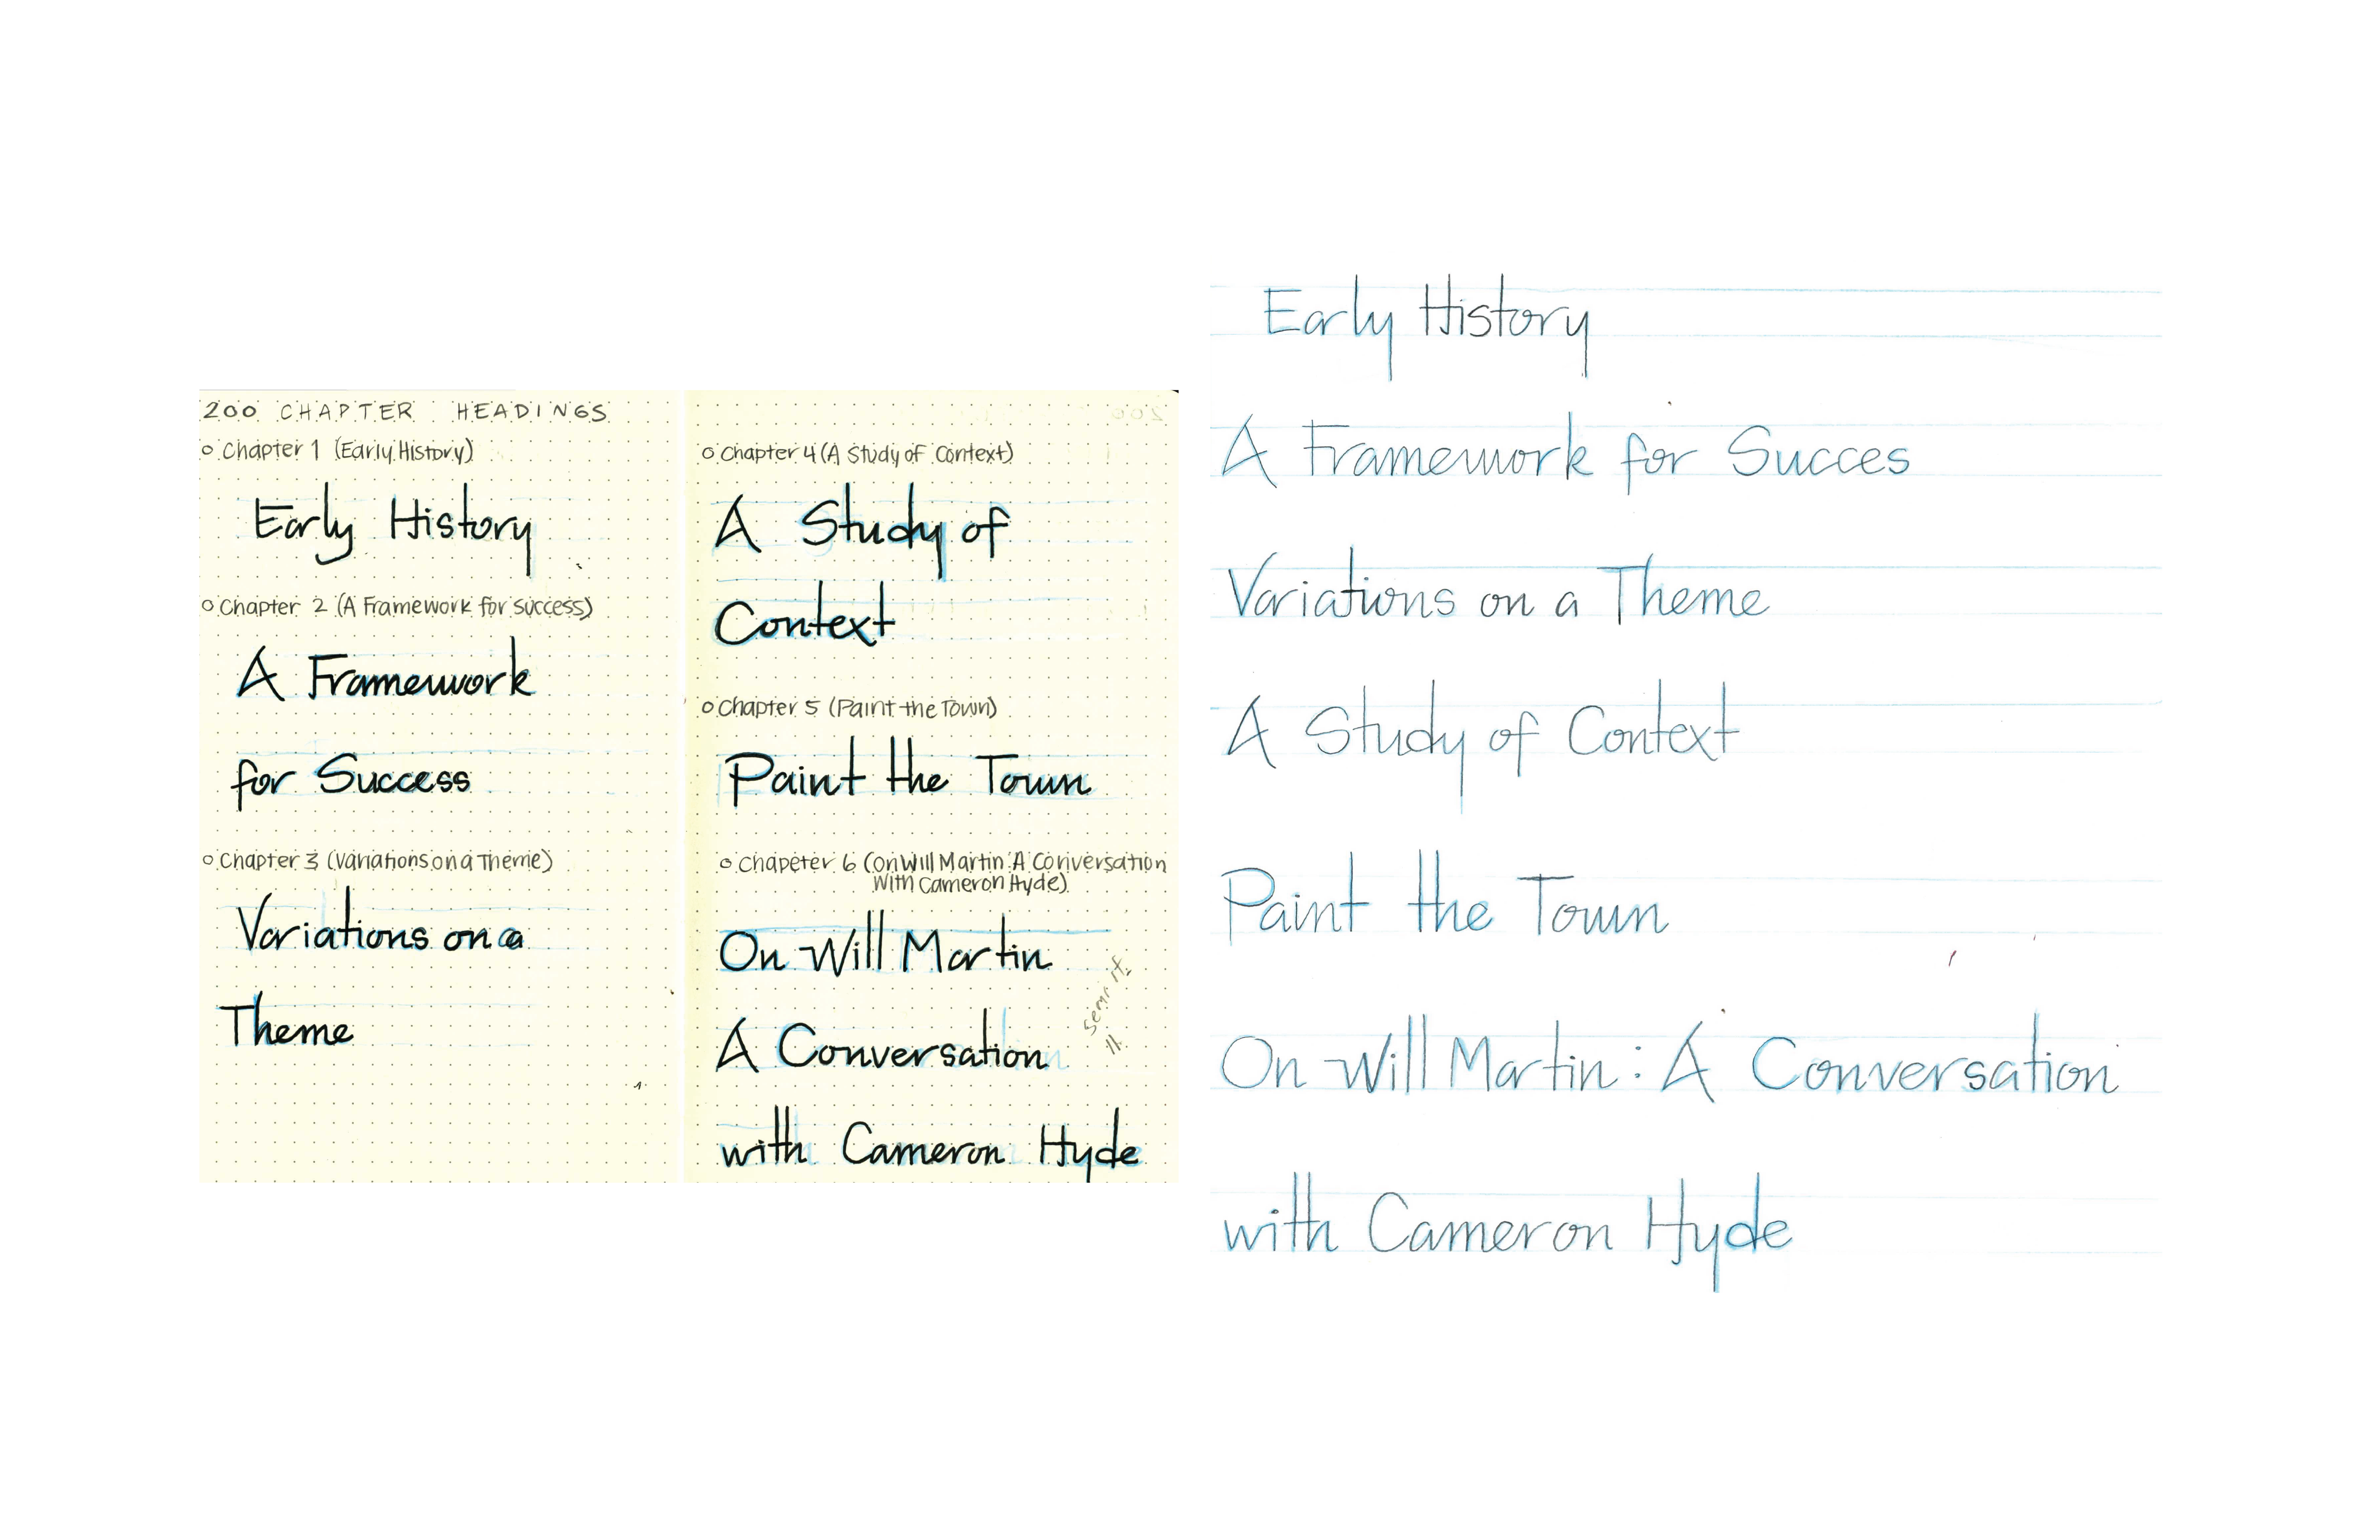 200 CHAPTER HEADINGS
Chapter 1 (Early History)
Early History
Chapter 2 (A Framework for Success)
A Framework
for Success
Chapter 3 (Variations on a Theme)
Variations on a
Theme
Chapter 4 (A Study of Context)
A Study of
Context
Chapter 5 (Paint the Town)
Paint the Town
Chapeter 6 (On Will Martin: A Conversation
With Cameron Hyde)
On Will Martin
A Conversation
with Cameron Hyde
Early History
A Framework for Succes
Variations on a Theme
A Study of Context
Paint the Town
On Will Martin: A Conversation
with Cameron Hyde